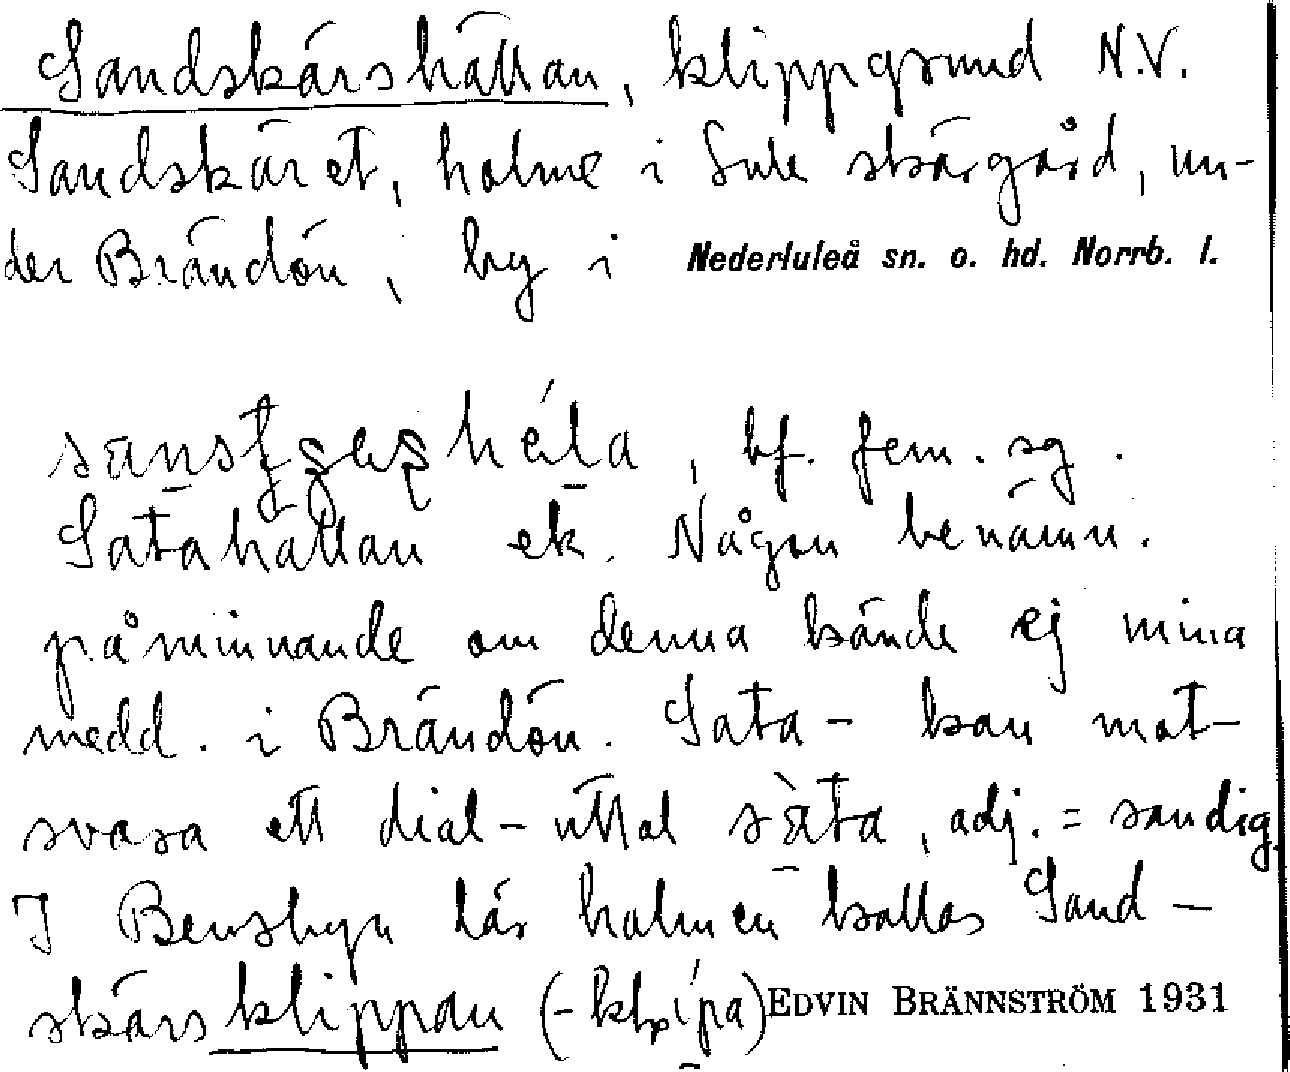 Sandskärshällan, klippgrund N.V.
Sandskäret, holme i Lule skärgård, un-
der Brändön, by i Nederluleå sn. o. hd. Norrb. l.
bf. fem. sg.
Satahällan ek. Någon benämn.
påminnande om denna kände ej mina
medd. i Brändön. Sata- kan mot-
svara ett dial-uttal sàta, adj. = sandig.
I Bensbyn lär holmen kallas Sand-
skärsklippan EDVIN BRÄNNSTRÖM 1931